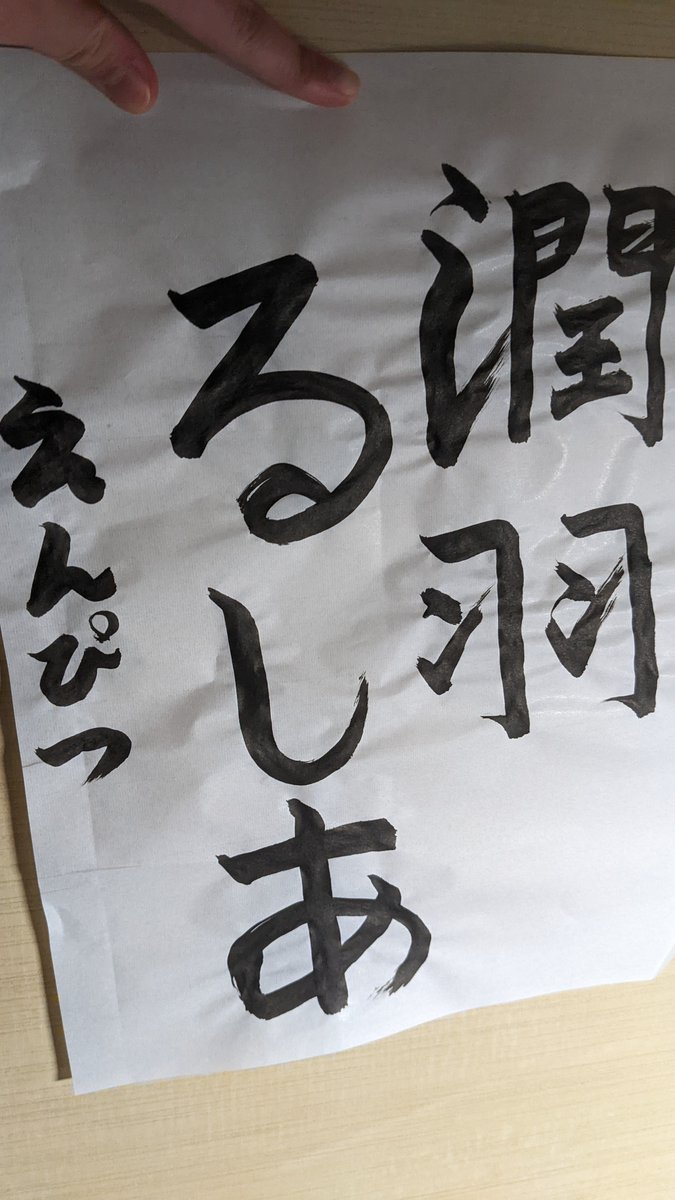 潤羽
るしあ
えんぴつ